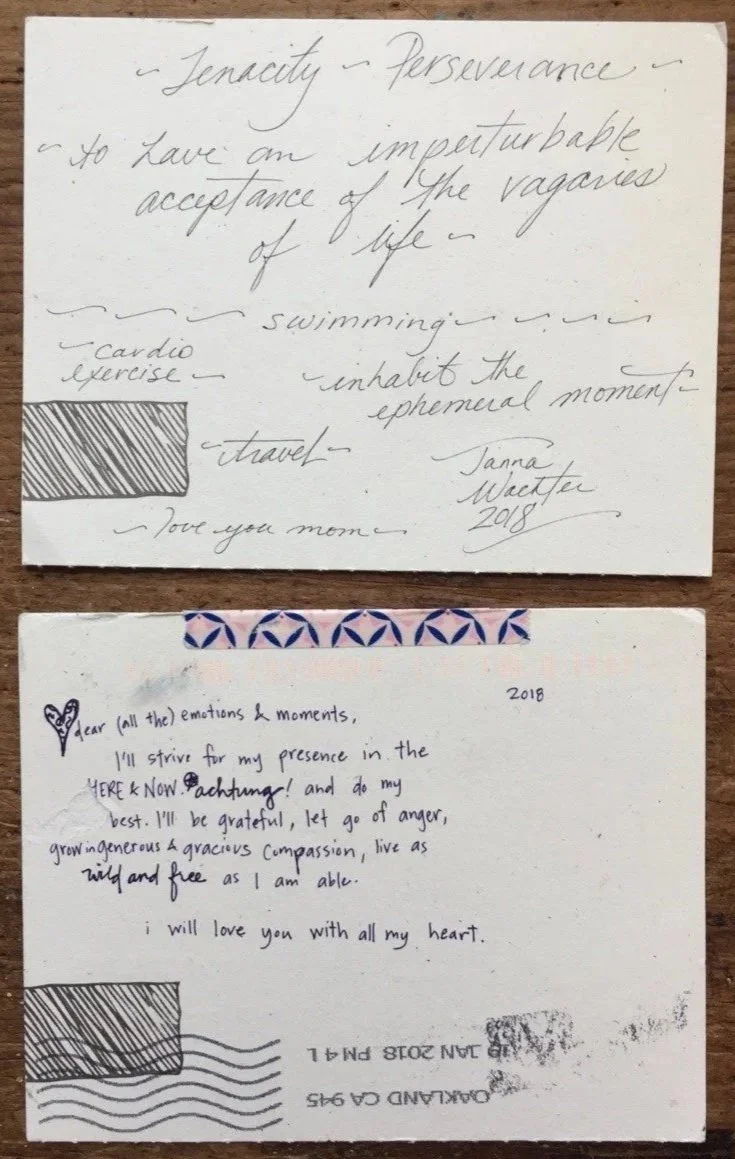 ~ Tenacity ~ Perseverance ~
~ to have an imperturbable
acceptance of the vagaries
of life ~
~ ~ ~ swimming ~ ~ ~ ~
~ cardio
exercise ~
~ inhabit the
ephemeral moment ~
~ travel ~
Janna
Wachter
2018
~ love you mom ~
2018
dear (all the) emotions & moments,
I'll strive for my presence in the
HERE & NOW. achtung! and do my
best. I'll be grateful, let go of anger,
grow in generous & gracious compassion, live as
wild and free as I am able.
i will love you with all my heart.
JAN 2018 PM 4 L
OAKLAND CA 945